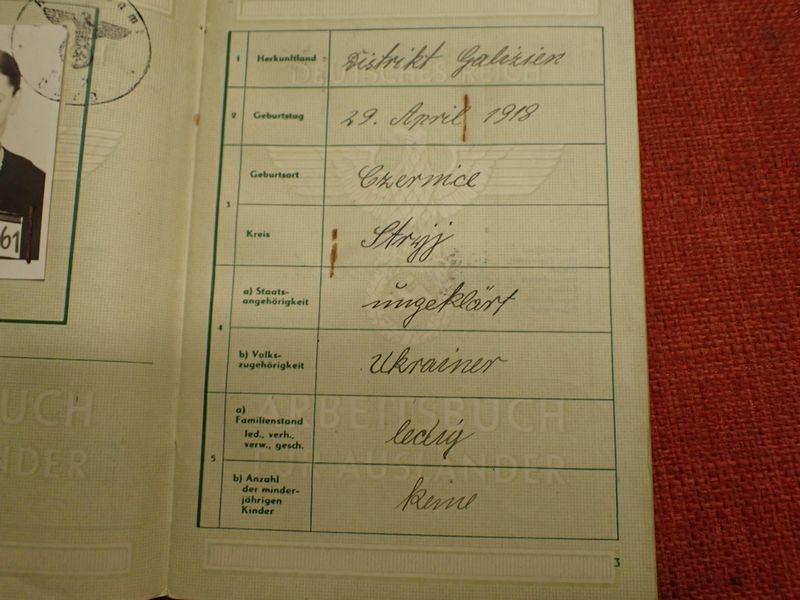 1 Herkunftland: Distrikt Galizien
2 Geburtstag 29. April 1918
3 Geburtsort Czernice
Kreis Stryj
4 a) Staats-
angehörigkeit ungeklärt
b) Volks-
zugehörigkeit Ukrainer
5 a)
Familienstand
led., verh.,
verw., gesch. ledig
b) Anzahl
der minder-
jährigen
Kinder keine
ARBEITSBUCH
FÜR AUSLÄNDER
DEUTSCHES REICH
BUCH
NDER
61
3